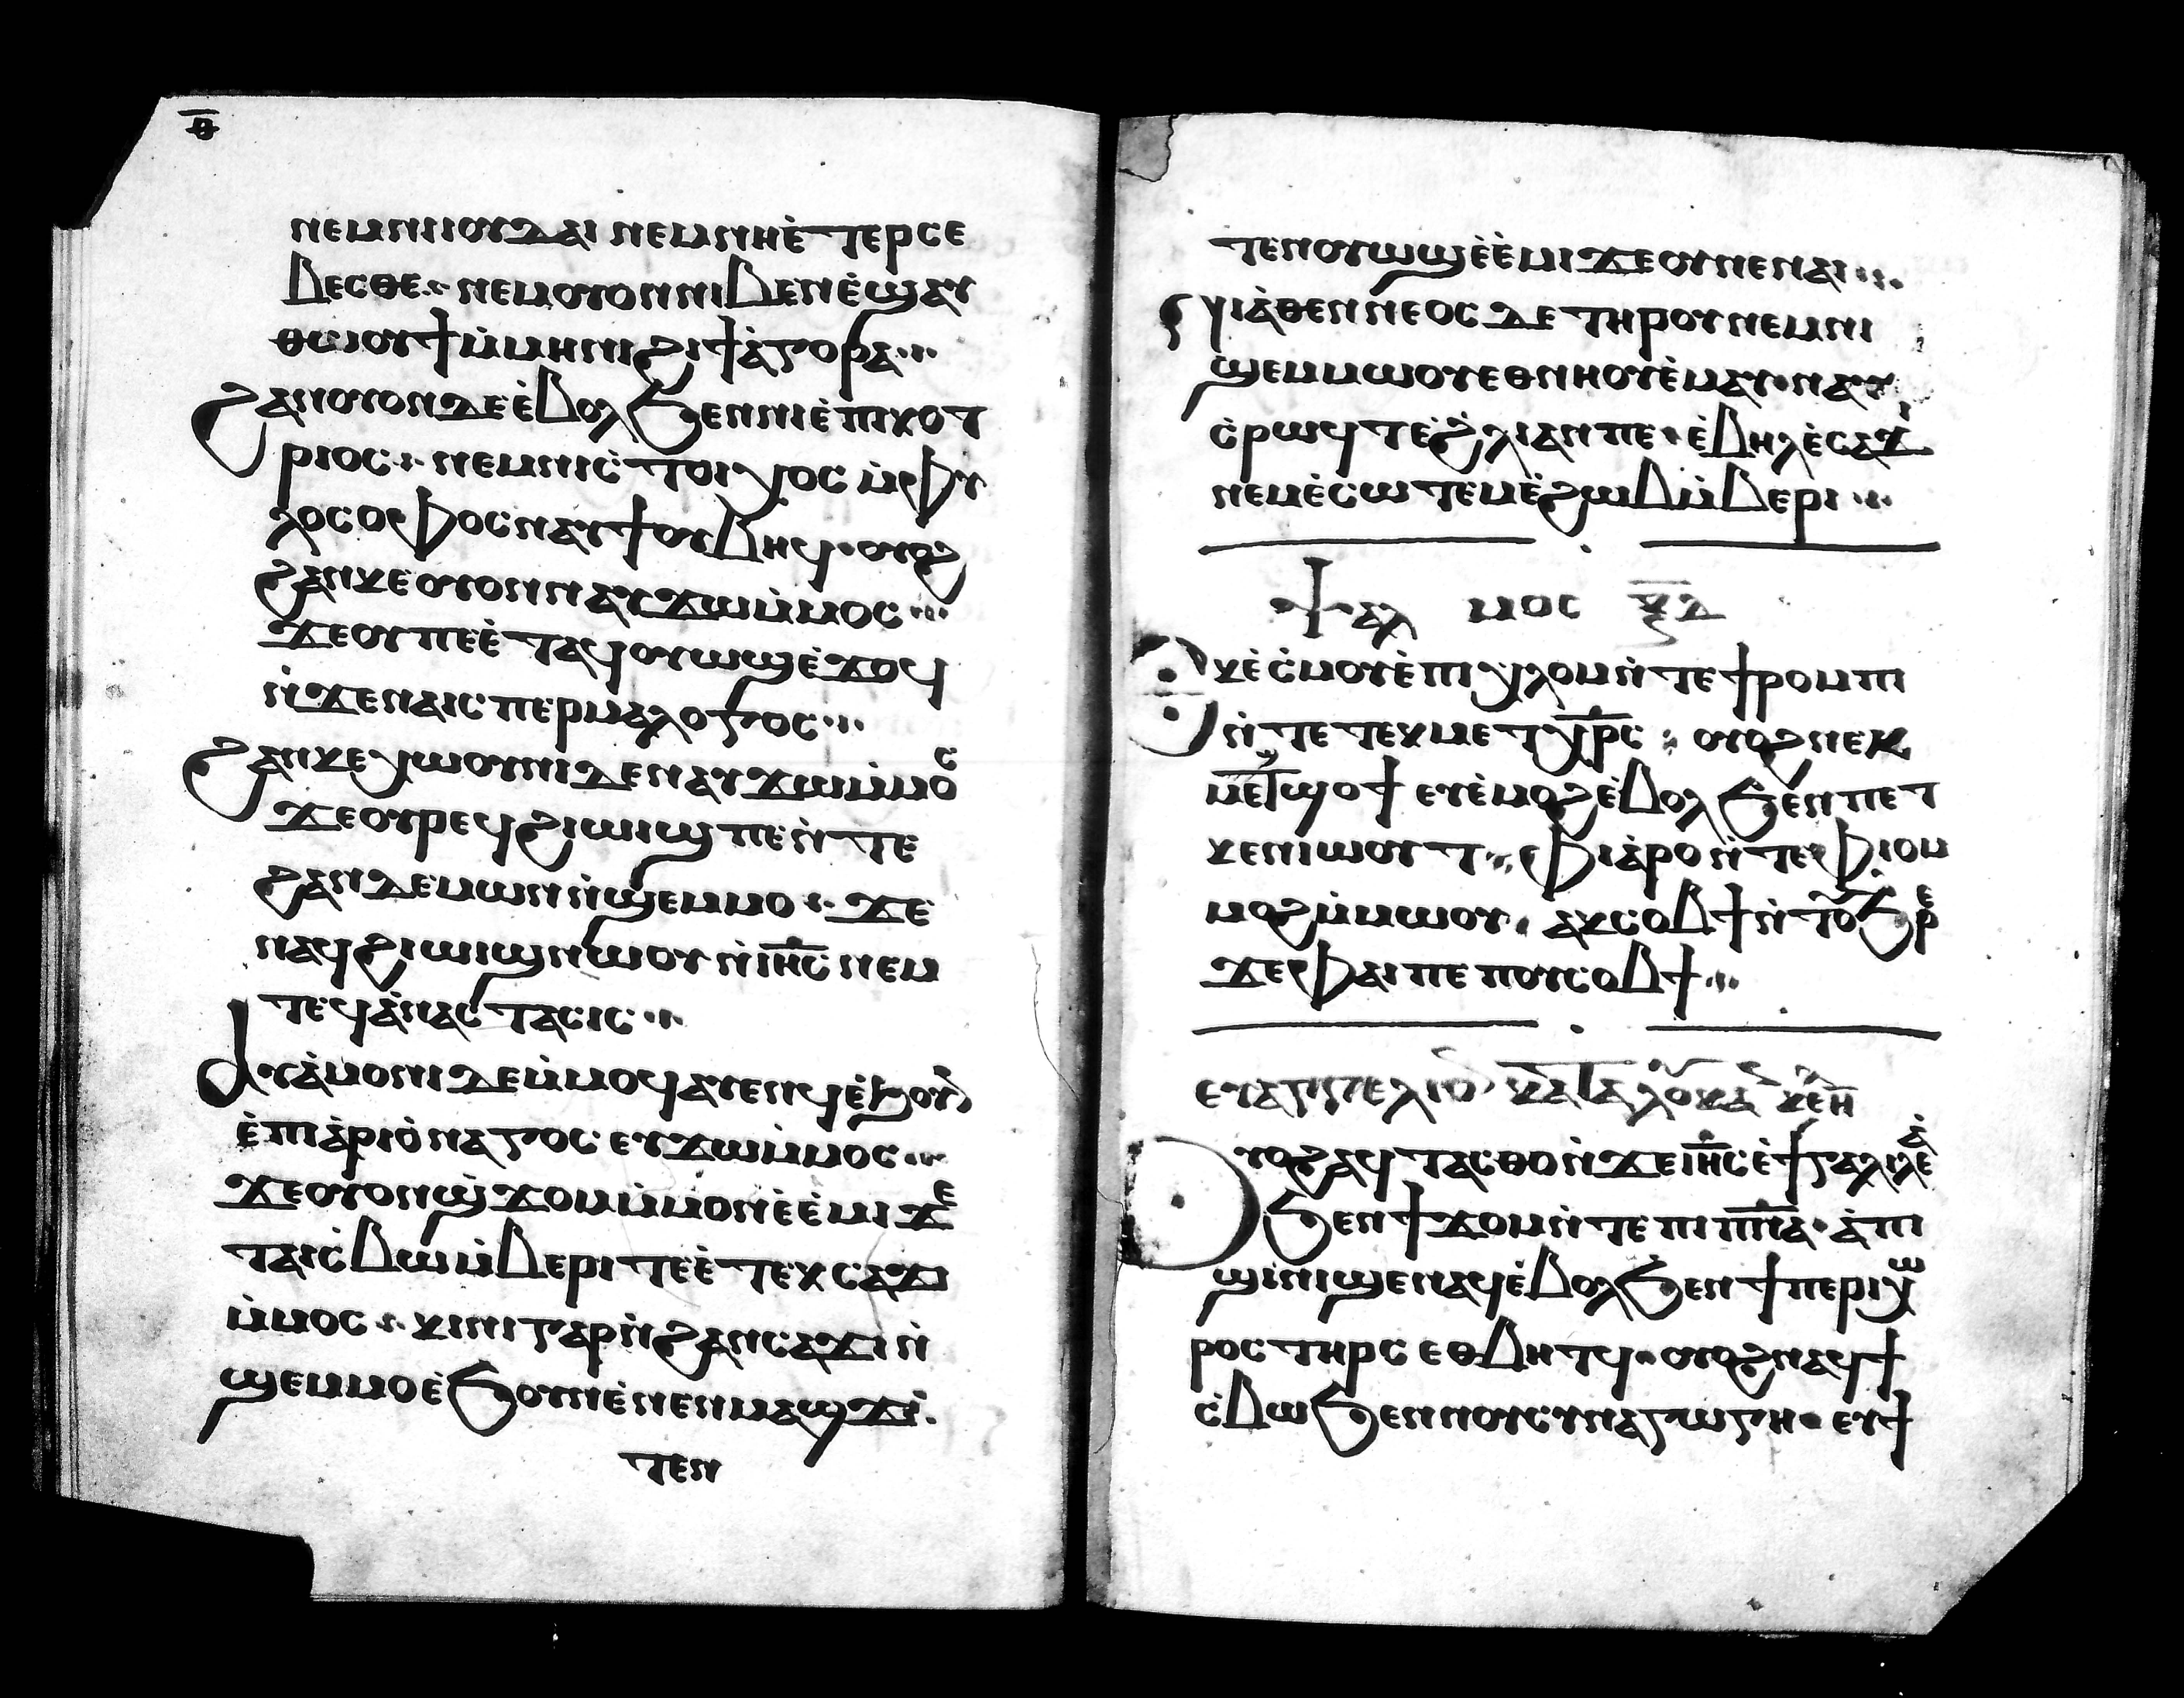 ⲑ̅
ⲛⲉⲙⲛⲓⲓⲟⲩⲇⲁⲓ ⲛⲉⲙⲛⲏⲉ̀ⲧⲉⲣⲥⲉ
ⲃⲉⲥⲑⲉ ⁖ ⲛⲉⲙⲟⲩⲟⲛⲛⲓⲃⲉⲛⲉ̀ϣⲁⲩ
ⲑⲱⲟⲩϯⲙ̀ⲙⲏⲛⲓϩⲓϯⲁ̀ⲅⲟⲣⲁ ⁖
ϩⲁⲛⲟⲩⲟⲛⲇⲉⲉ̀ⲃⲟⲗϧⲉⲛⲛⲓⲉ̀ⲡⲓⲕⲟⲩ
ⲣⲓⲟⲥ ⁖ ⲛⲉⲙⲛⲓⲥ̀ⲧⲟⲓⲭⲟⲥ ⲙ̀ⲫⲩ
ⲗⲟⲥⲟⲫⲟⲥⲛⲁⲩϯⲟⲩⲃⲏϥ · ⲟⲩⲟϩ
ϩⲁⲛⲕⲉⲟⲩⲟⲛⲛⲁⲩϫⲱⲙ̀ⲙⲟⲥ ⁖
ϫⲉⲟⲩⲡⲉⲉ̀ⲧⲁϥⲟⲩⲱϣⲉ̀ϫⲟϥ
ⲛ̀ϫⲉⲡⲁⲓⲥⲡⲉⲣⲙⲁⲗⲟⲅⲟⲥ ⁖
ϩⲁⲛⲕⲉⲭⲱⲟⲩⲛⲓⲇⲉⲛⲁⲩϫⲱⲙ̀ⲙⲟⲥ
ϫⲉⲟⲩⲣⲉϥϩⲓⲱⲓϣⲡⲉⲛ̀ⲧⲉ
ϩⲁⲛⲇⲉⲙⲱⲛⲛ̀ϣⲉⲙⲙⲟ ⁖ ϫⲉ
ⲛⲁϥϩⲓⲱⲓϣⲛⲱⲟⲩ ⲛ̀ⲓⲏ̅ⲥ̅ ⲛⲉⲙ
ⲧⲉϥⲁ̀ⲛⲁⲥⲧⲁⲥⲓⲥ ⁖
ⲁⲩⲁ̀ⲙⲟⲛⲓⲇⲉⲙ̀ⲙⲟϥⲁⲩⲉⲛϥⲉ̀ϧⲟⲩⲛ
ⲉ̀ⲡⲓⲁ̀ⲣⲓⲟ̀ⲛⲁⲅⲟⲥ ⲉⲩϫⲱⲙ̀ⲙⲟⲥ ⁖
ϫⲉⲟⲩⲟⲛϣ̀ϫⲟⲙⲙ̀ⲙⲟⲛⲉ̀ⲉ̀ⲙⲓ ϫⲉ
ⲧⲁⲓⲥ̀ⲃⲱⲙ̀ⲃⲉⲣⲓⲧⲉⲉ̀ⲧⲉⲕⲥⲁϫⲓ
ⲙ̀ⲙⲟⲥ ⁖ ⲕⲓⲛⲓⲅⲁⲣⲛ̀ϩⲁⲛⲥⲁϫⲓⲛ̀
ϣⲉⲙⲙⲟⲉ̀ϧⲟⲩⲛⲉ̀ⲛⲉⲛⲙⲁϣϫ̀ ·
ⲧⲉⲛ
ⲧⲉⲛⲟⲩⲱϣⲉ̀ⲉ̀ⲙⲓϫⲉⲟⲩⲡⲉⲛⲁⲓ ⁖
ϩⲓⲁ̀ⲑⲉⲛⲛⲉⲟⲥⲇⲉⲧⲏⲣⲟⲩⲛⲉⲙⲛⲓ
ϣⲉⲙⲙⲱⲟⲩⲉⲑⲛⲏⲟⲩⲉ̀ⲙⲁⲩ · ⲛⲁⲩ
ⲥ̀ⲣⲱϥⲧⲉ̀ϩ̀ⲗⲓⲁⲛⲡⲉ · ⲉ̀ⲃⲏⲗⲉ̀ⲥⲁϫⲓ
ⲛⲉⲙⲉ̀ⲥⲱⲧⲉⲙⲉ̀ϩⲱⲃⲙ̀ⲃⲉⲣⲓ ⁖
ⲯⲁⲗⲙⲟⲥ ⲝ̅ⲇ̅
ⲭⲉ̀ⲥ̀ⲙⲟⲩⲉ̀ⲡⲓⲭⲗⲟⲙⲛ̀ⲧⲉϯⲣⲟⲙⲡⲓ
ⲛ̀ⲧⲉⲧⲉⲕⲙⲉⲧⲭ̅ⲣ̅ⲥ̅ ⁖ ⲟⲩⲟϩⲛⲉⲕ
ⲙⲉϣϣⲟϯ ⲉⲩⲉ̀ⲙⲟϩⲉ̀ⲃⲟⲗϧⲉⲛⲡⲉⲧ
ⲕⲉⲛⲓⲱⲟⲩⲧ ⁖ ⲫⲓⲁ̀ⲣⲟⲛ̀ⲧⲉⲫⲓⲟⲙ
ⲙⲟϩⲙ̀ⲙⲱⲟⲩ · ⲁⲕⲥⲟⲃϯⲛ̀ⲧⲟⲩϧⲣⲉ
ϫⲉⲫⲁⲓⲡⲉ ⲡⲟⲩⲥⲟⲃϯ ⁖
ⲉⲩⲁⲅⲅⲉⲗⲓⲟⲛ ⲕⲁⲧⲁⲗⲟⲩⲕⲁ
ⲟⲩⲟϩⲁϥⲧⲁⲥⲑⲟⲛ̀ϫⲉⲓⲏ̅ⲥ̅ⲉ̀ϯⲅⲁⲗⲓⲗⲉⲁ̀
ϧⲉⲛϯϫⲟⲙⲛ̀ⲧⲉⲡⲓⲡ̅ⲛ̅ⲁ̅ · ⲁ̀ⲡⲓ
ϣⲓⲛⲓϣⲉⲛⲁϥⲉ̀ⲃⲟⲗϧⲉⲛϯⲡⲉⲣⲓⲭⲱ
ⲣⲟⲥⲧⲏⲣⲥ ⲉⲑⲃⲏⲧϥ · ⲟⲩⲟϩⲛⲁϥϯ
ⲥ̀ⲃⲱϧⲉⲛⲛⲟⲩⲥⲩⲛⲁⲅⲱⲅⲏ · ⲉⲩϯ